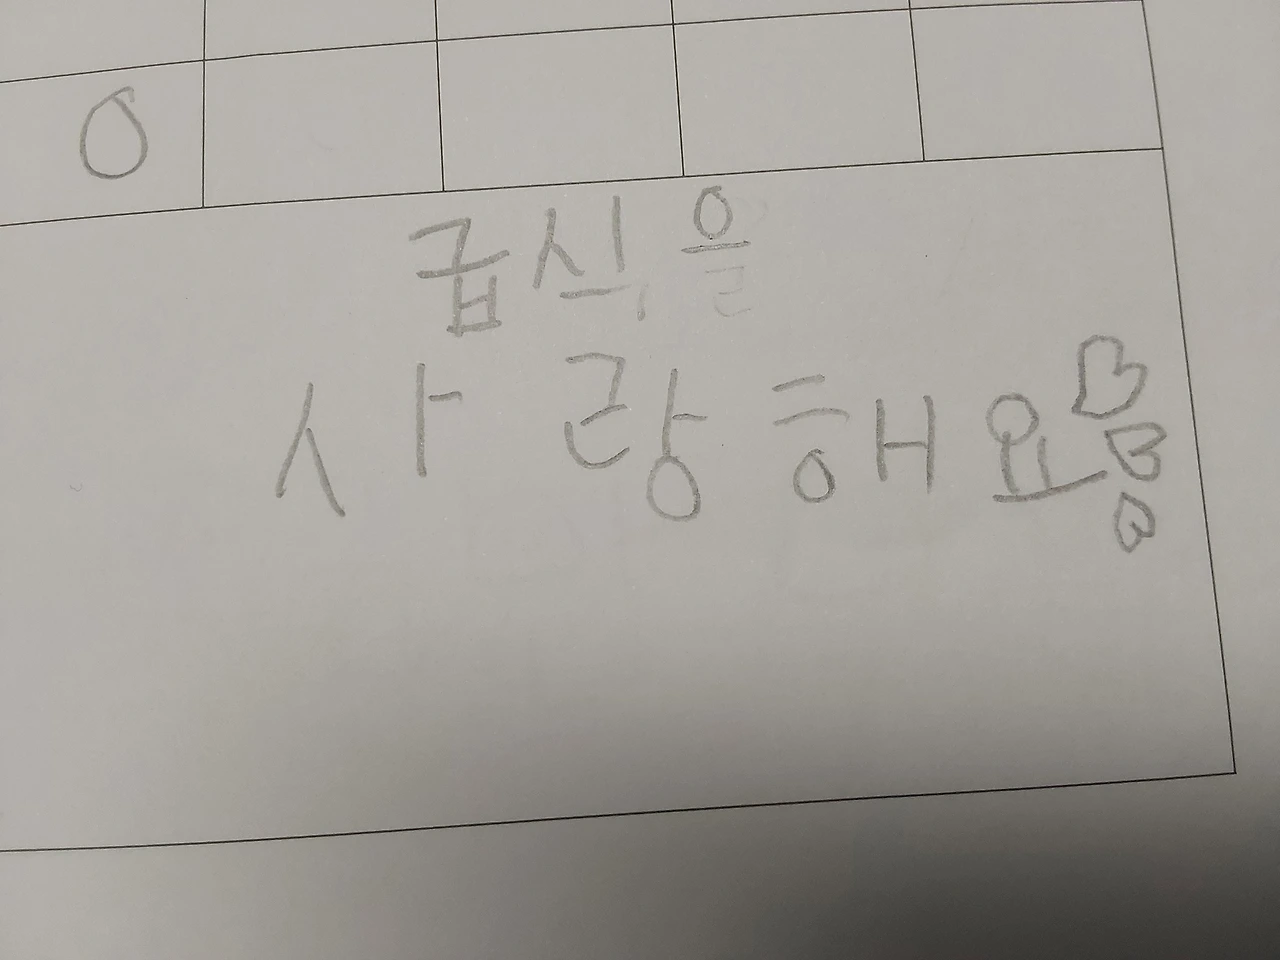 O
급식을
사랑해요♡♡♡